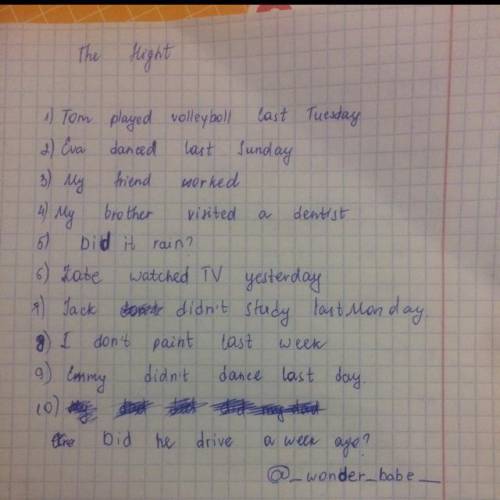 The Hight
1) Tom played volleyboll last Tuesday
2) Eva danced last Sunday
3) My friend worked
4) My brother visited a dentist
5) Did it rain?
6) Kate watched TV yesterday
7) Jack didn't study last Monday.
8) I don't paint last week
9) Emmy didn't dance last day.
10)
Did he drive a week ago?
@_wonder_babe__